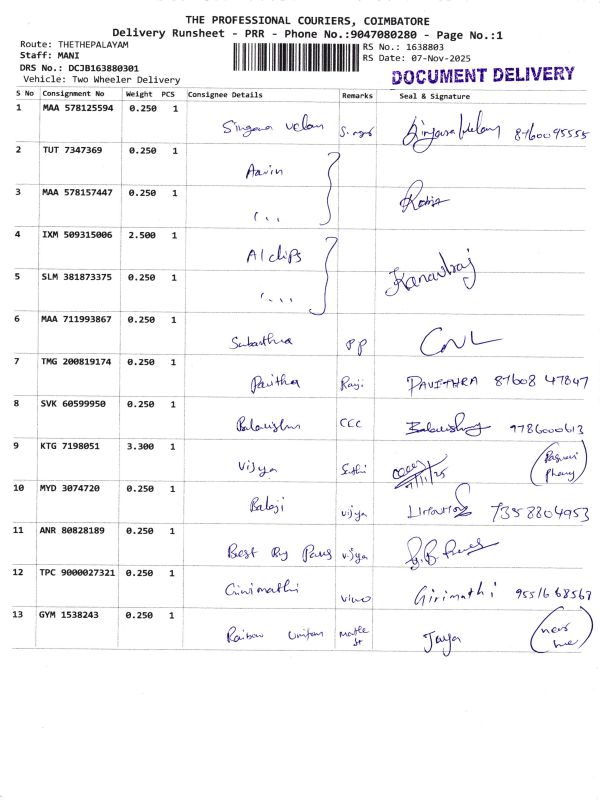 THE PROFESSIONAL COURIERS, COIMBATORE
Delivery Runsheet - PRR - Phone No.:9047080280 - Page No.:1
Route: THETHEPALAYAM
Staff: MANI
DRS No.: DCJB163880301
Vehicle: Two Wheeler Delivery
RS No.: 1638803
RS Date: 07-Nov-2025
DOCUMENT DELIVERY
S No Consignment No Weight PCS Consignee Details Remarks Seal & Signature
1 MAA 578125594 0.250 1 Singara velan 8760095555
2 TUT 7347369 0.250 1 Aavin
3 MAA 578157447 0.250 1
4 IXM 509315006 2.500 1 A1 chips
5 SLM 381873375 0.250 1 Kanavraj
6 MAA 711993867 0.250 1 PP
7 TMG 200819174 0.250 1 Pavitha Raji PAVITHRA 87608 47847
8 SVK 60599950 0.250 1 CCC 9786000613
9 KTG 7198051 3.300 1 Vijya Sathi
10 MYD 3074720 0.250 1 Balaji vijya 7358804953
11 ANR 80828189 0.250 1 Best Ry Paus vijya
12 TPC 9000027321 0.250 1 Girimathi vino Girimathi 9551668563
13 GYM 1538243 0.250 1 Rainbow Jaya